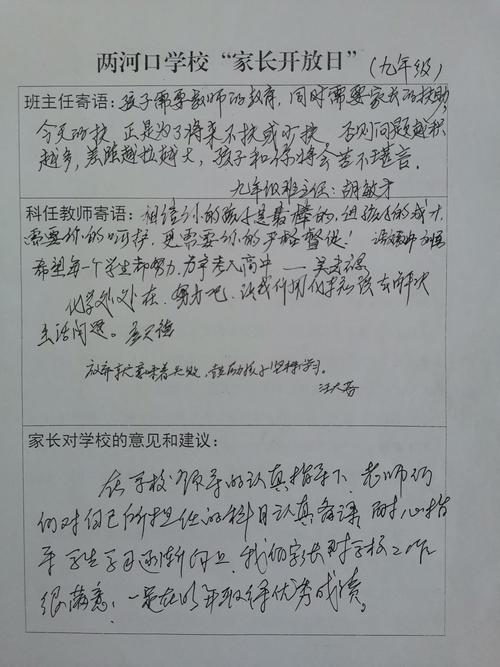 两河口学校“家长开放日”(九年级)
班主任寄语：孩子需要教师的教育，同时需要家长的扶助
今天的扶 正是为了将来不扶或少扶 否则问题越积
越多，差距越拉越大，孩子和你将会苦不堪言。
九年级班主任：胡敏才
科任教师寄语：相信你的孩子是最棒的，但孩子的成才
需要你的呵护，更需要你的严格督促！
希望每一个学生都努力，力争考入高中
化学处处在，努力吧，让我们用化学知识去解决
生活问题。
放弃就意味着失败，鼓励孩子坚持学习。
家长对学校的意见和建议：
在学校领导的认真指导下，老师们
们对自己所担任的科目认真备课，耐心指
导学生学习逐渐向上，我们家长对学校工作
很满意，一定在明年取得优秀成绩。